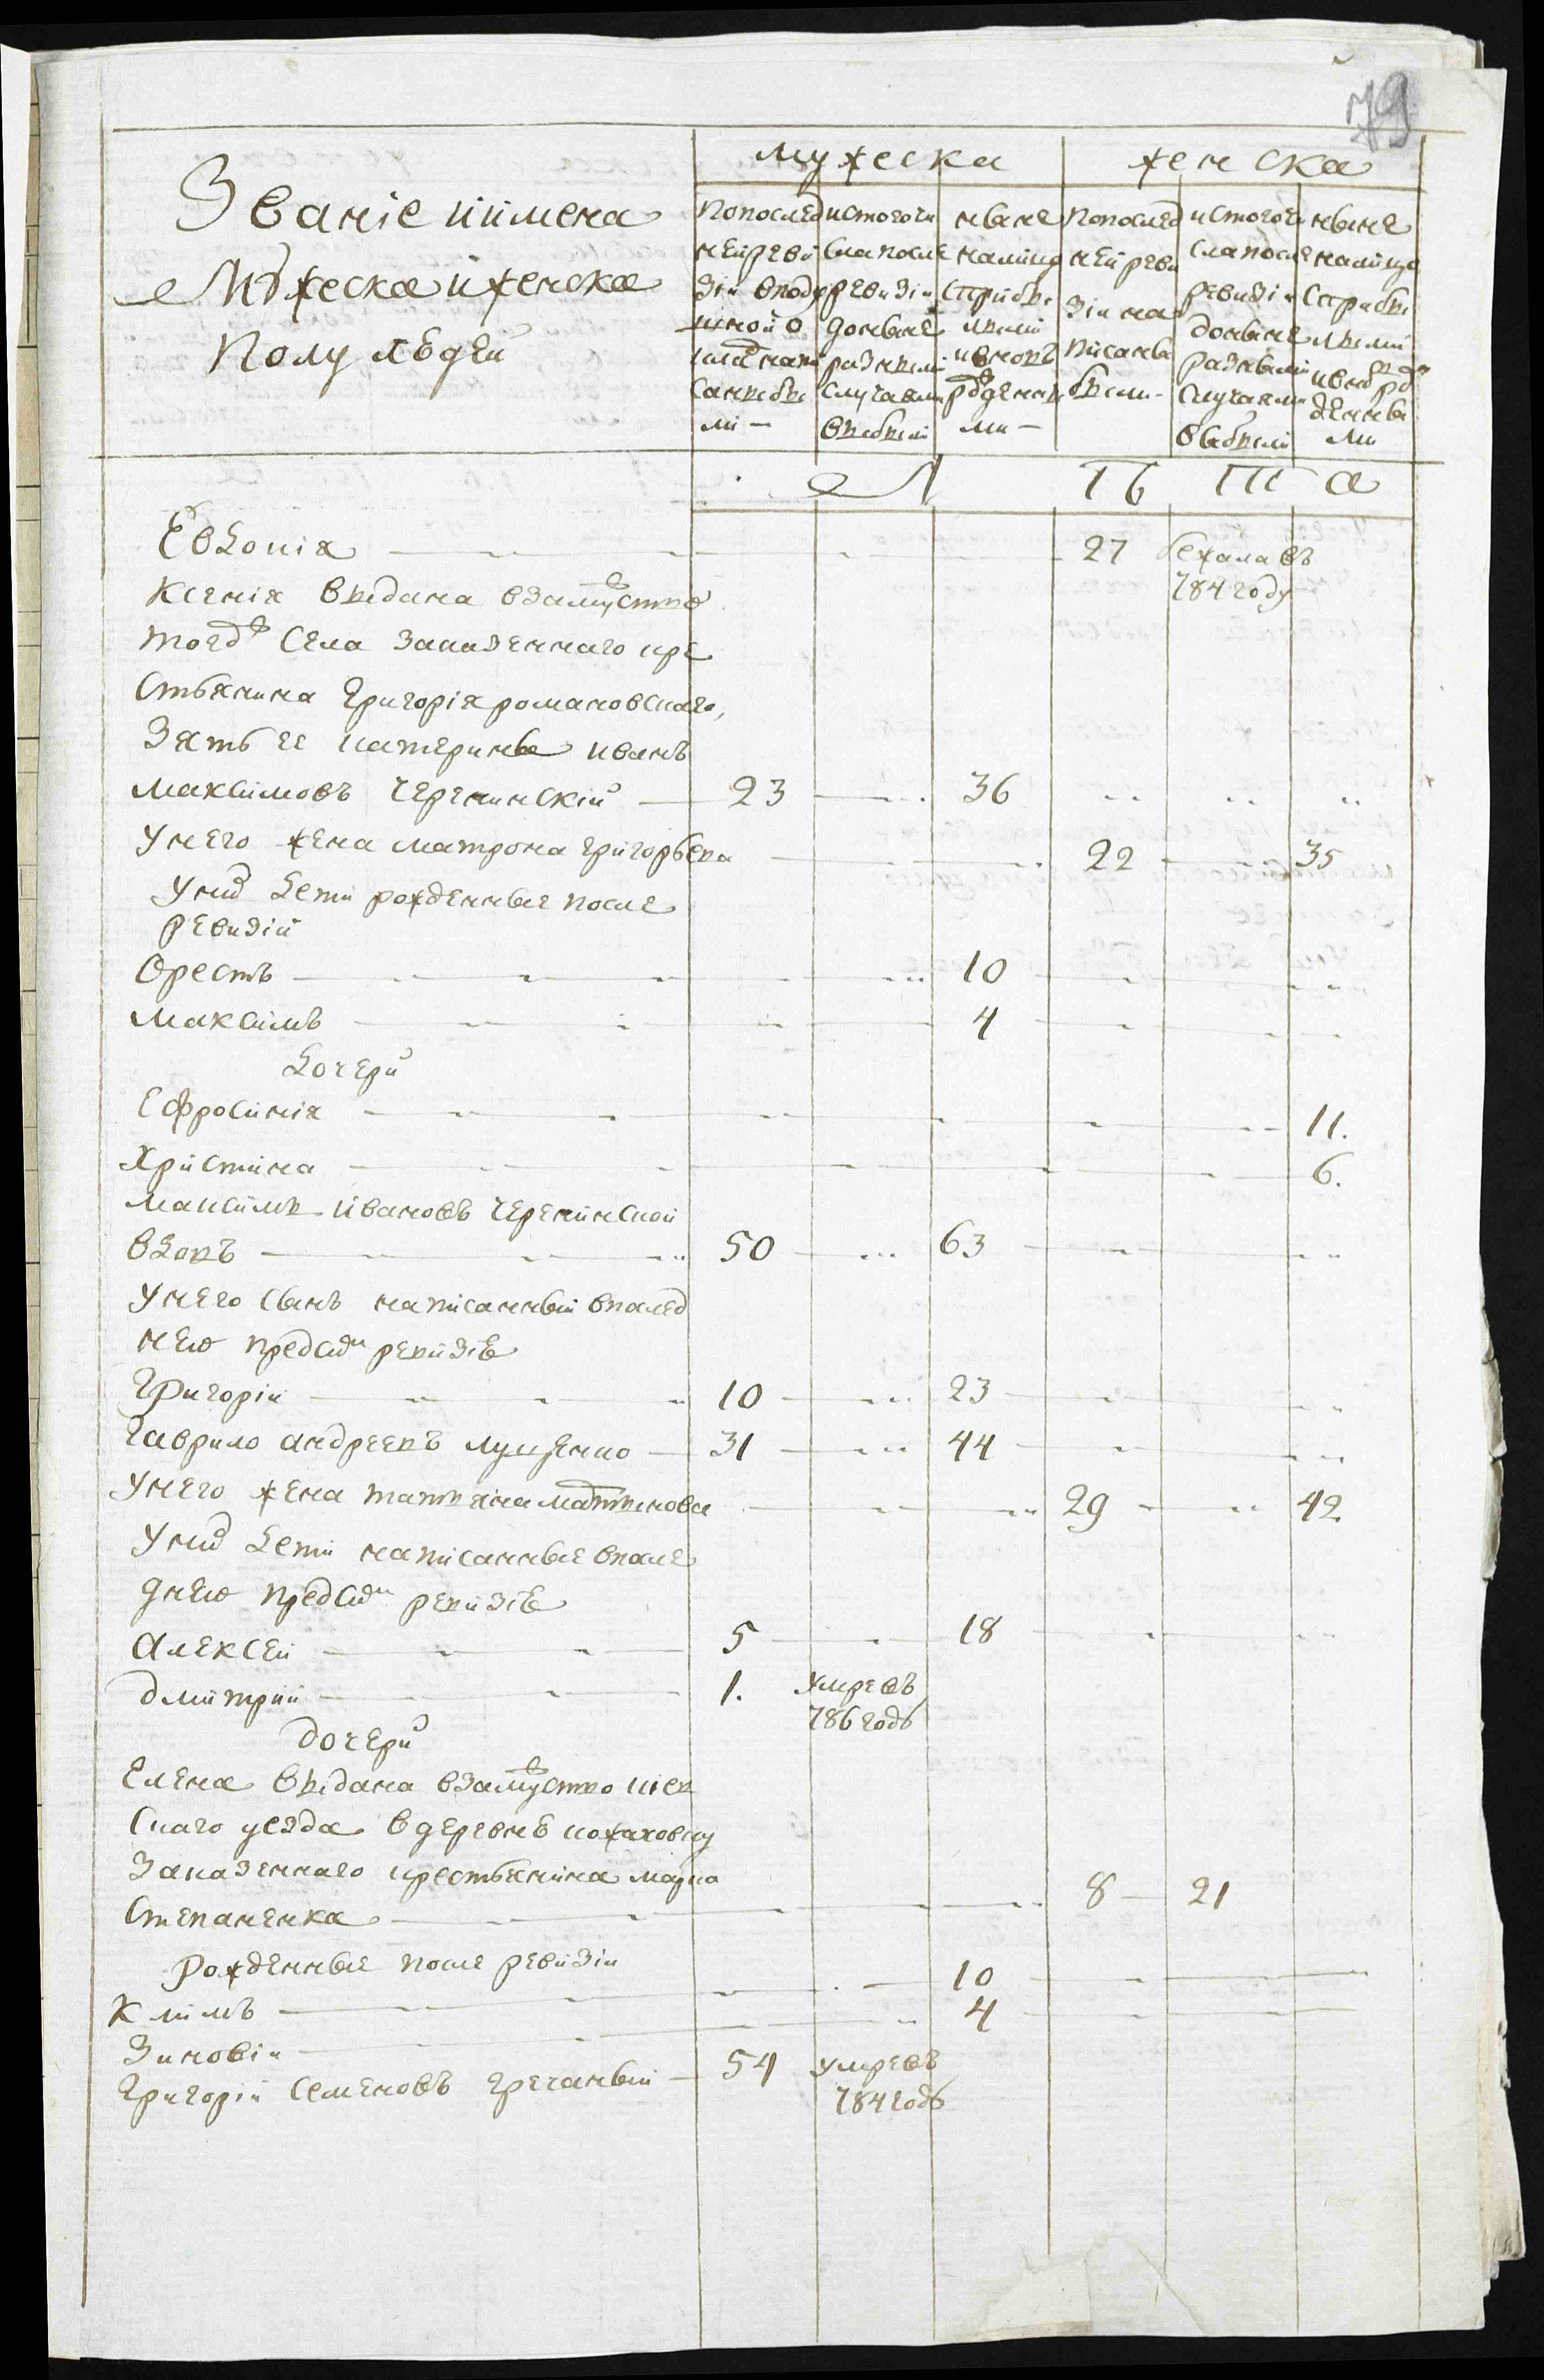 79
Званіе и имена
Мужеска и женска
Полу людей
мужеска
женска
попослед
ней реви
зіи
напи
санные
ми —
и стого чи
сла после
ревизіи
до ныне
разными
случаями
выбыли
ныне
налицо
с прибы
лыми
и вновь
рожденны
ми —
попослед
ней реви
зіи на
писаны
и стого чи
сла после
ревизіи
до ныне
разными
случаями
выбыли
ныне
налицо
с прибы
лыми
и внов ро
жденны
ми
Л Ѣ Т А
Евдокія 27 бежала въ
784 году
Ксенія выдана взамужство
тогож села заказенного кре
стьянина Григорія романовскаго,
Зять ее катерины иванъ
максимовъ череминскій 23 36
у него жена матрона григорьева 22 35
у них дети рожденные после
ревизіи
Орестъ 10
максимъ 4
дочери
Ефросинія 11.
Христина 6.
максимъ ивановъ череминской
вдовъ 50 63
у него сынъ написанный впослед
нею предсим ревизіе
Григорій 10 23
гаврило андреевъ лущенко 31 44
у него жена татьяна мартынова 29 42
у них дети написанные впосле
днею предсим ревизіе
Алексей 5 18
дмитрий 1. умре въ
786 годѣ
дочери
Елена выдана взамужство киев
скаго уезда в деревнѣ кожаховку
заказенного крестьянина марка
Степаненка 8 21
рожденные после ревизіи
Климъ 10
Зиновій 4
Григорій Семеновъ гречаный 54 умре въ
784 годѣ